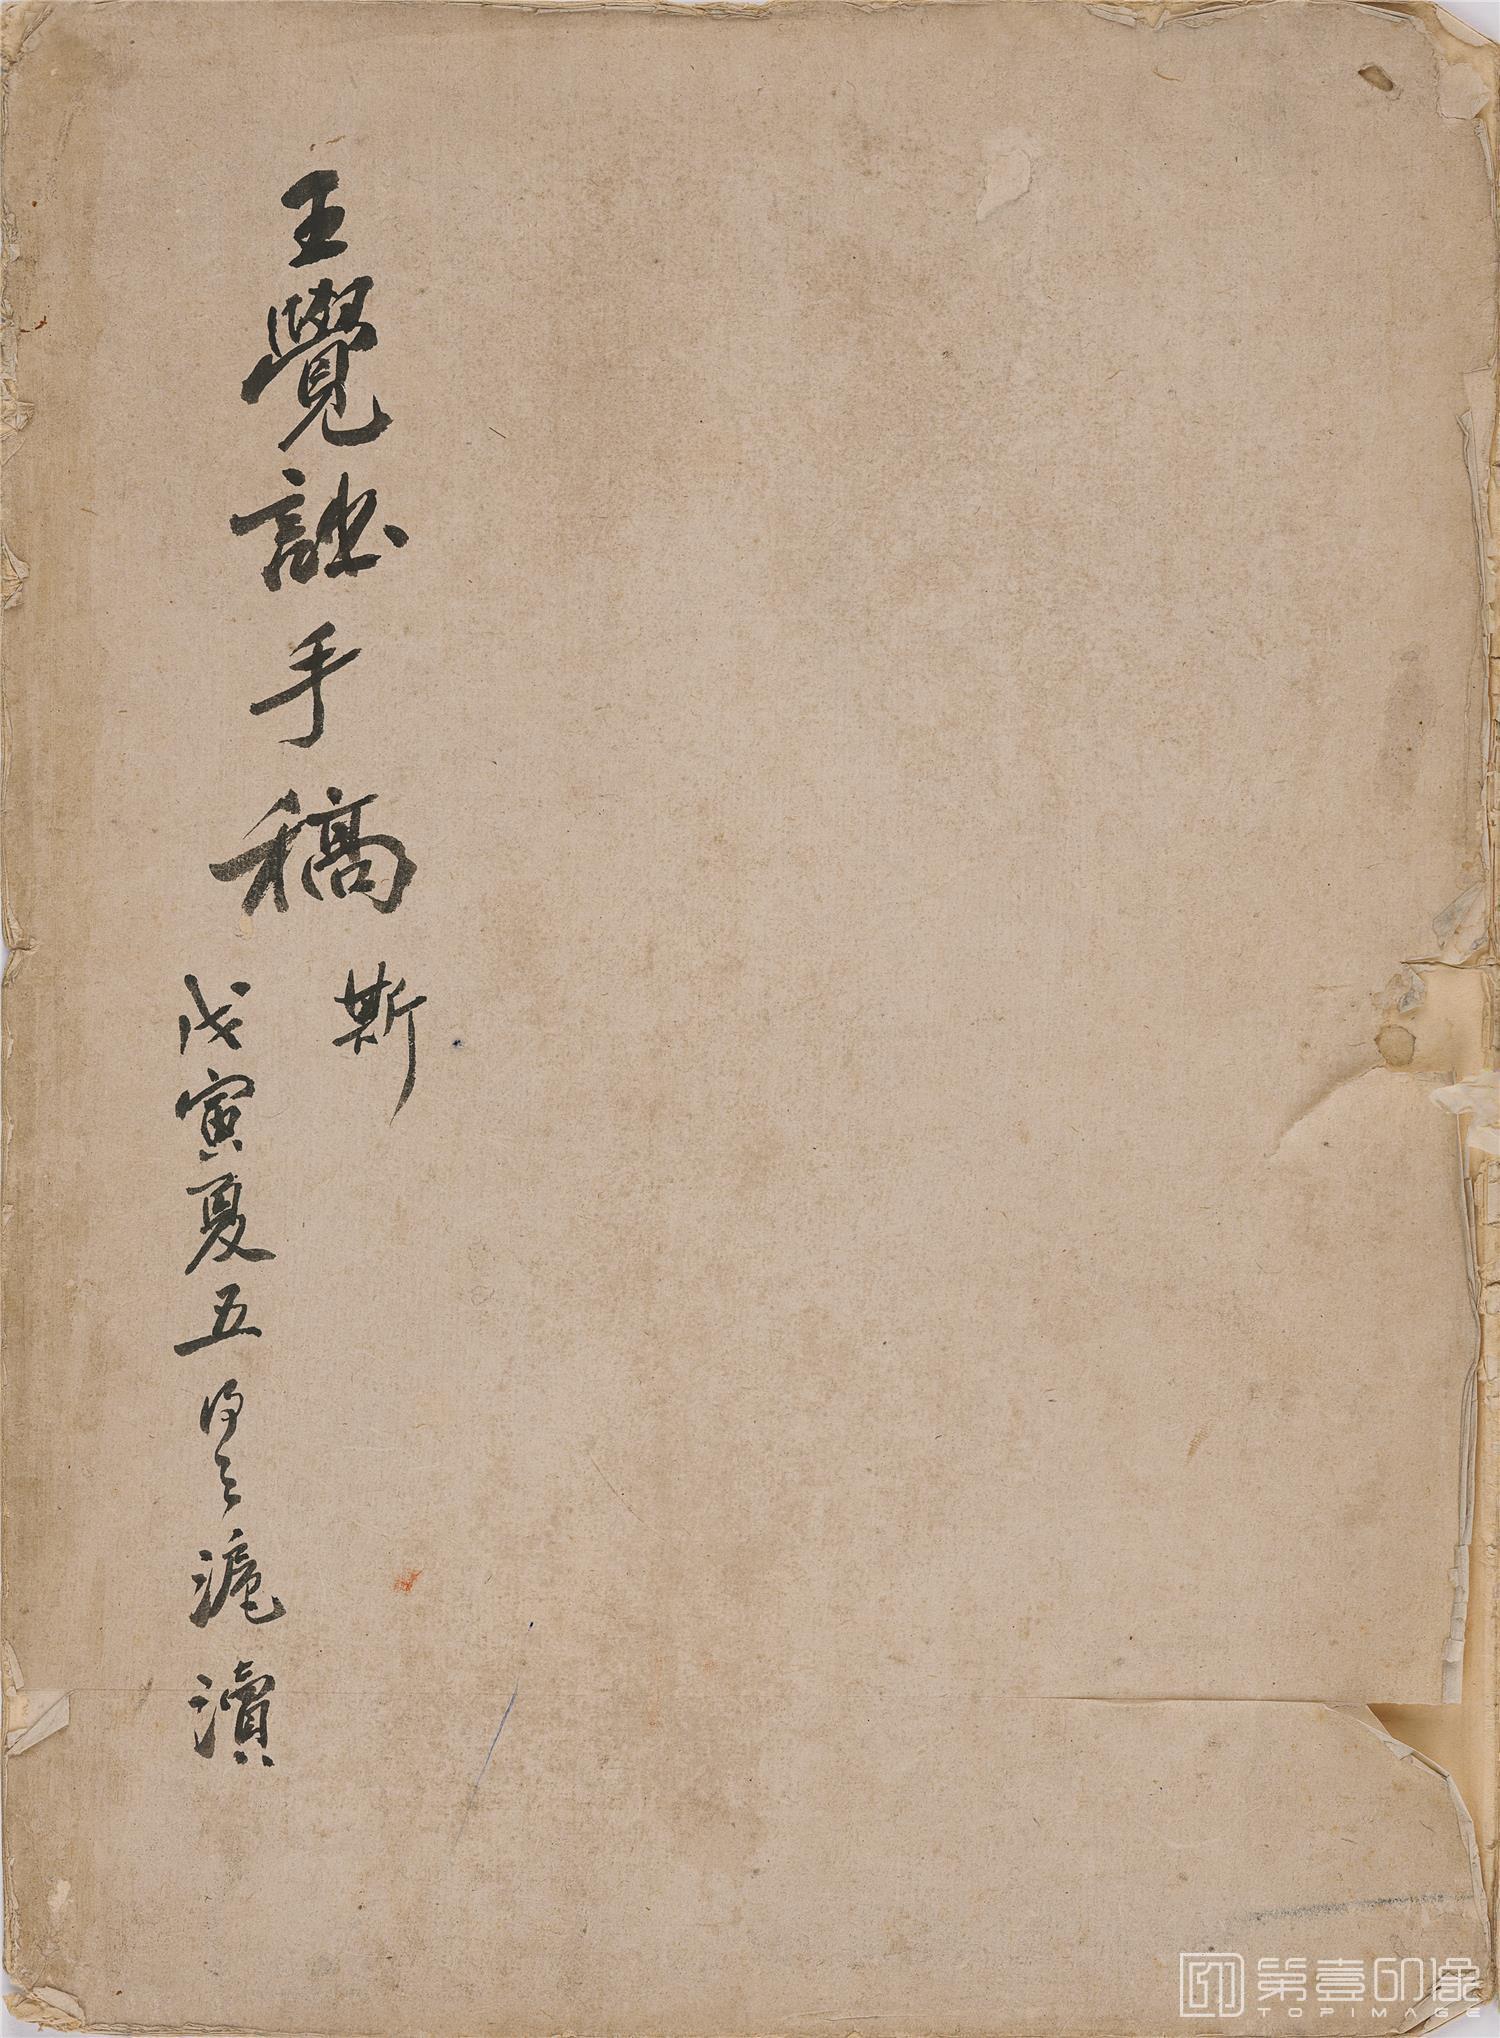 王覺詩手稿
斯
戊寅夏五得之滬瀆
第壹印像
TOPIMAGE